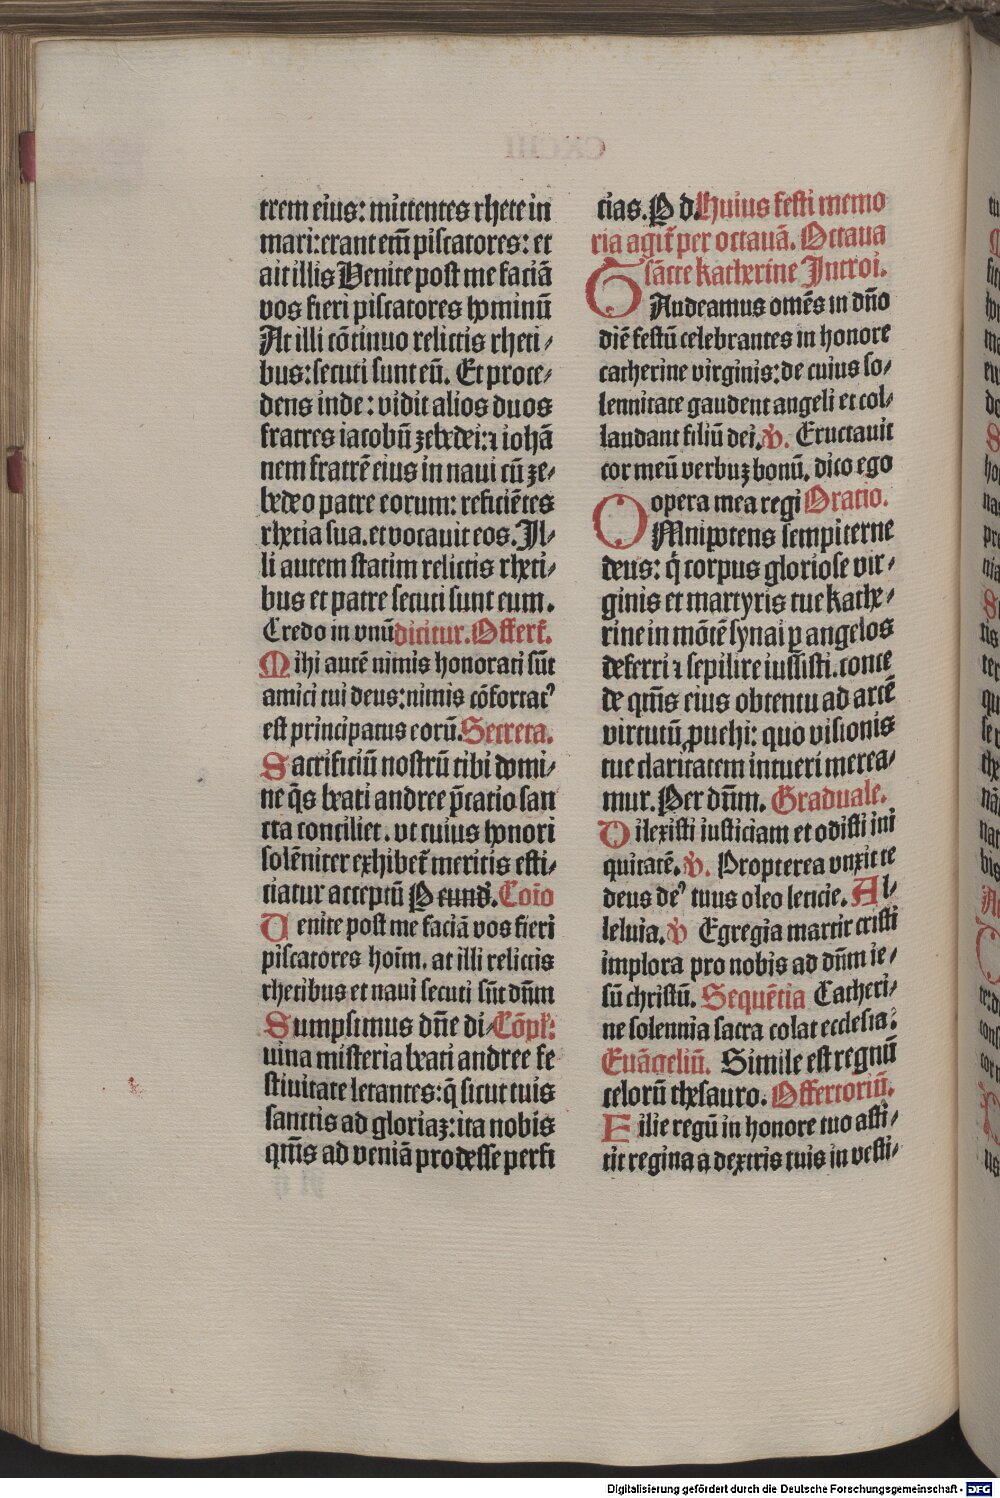 trem eius: mittentes rhete in
mari: erant em̄ piscatores: et
ait illis Venite post me faciā
vos fieri piscatores hominū
At illi cōtinuo relictis rheti⸗
bus: secuti sunt eū. Et proce⸗
dens inde: vidit alios duos
fratres iacobū zebedei: ⁊ iohā
nem fratrē eius in naui cū ze⸗
bedeo patre eorum: reficiētes
rhetia sua. et vocauit eos. Il⸗
li autem statim relictis rheti⸗
bus et patre secuti sunt eum.
Credo in vnū dicitur. Offert̄.
Mihi autē nimis honorati sūt
amici tui deus: nimis cōfortatꝰ
est principatus eorū. Secreta.
Sacrificiū nostrū tibi domi⸗
ne q̄s beati andree p̄catio san
cta conciliet. vt cuius honori
solēniter exhibet̄ meritis effi⸗
ciatur acceptū P eund. Cōio
Venite post me faciā vos fieri
piscatores hoīm. at illi relictis
rhetibus et naui secuti sūt dn̄m
Sumpsimus dn̄e di⸗ Cōpl̄:
uina misteria beati andree fe
stiuitate letantes: q̄ sicut tuis
sanctis ad gloriaꝫ: ita nobis
qm̄s ad veniā prodesse perfi
cias. P d. Huius festi memo
ria agit̄ per octauā. Octaua
sācte katherine Introi.
GAudeamus omēs in dn̄o
diē festū celebrantes in honore
catherine virginis: de cuius so⸗
lennitate gaudent angeli et col⸗
laudant filiū dei. ℣. Eructauit
cor meū verbuꝫ bonū. dico ego
opera mea regi Oratio.
OMnipotens sempiterne
deus: q̇ corpus gloriose vir⸗
ginis et martyris tue kathe⸗
rine in mōtē synai ꝑ angelos
deferri ⁊ sepilire iussisti. conce
de qm̄s eius obtentu ad arcē
virtutū ꝓuehi: quo visionis
tue claritatem intueri merea⸗
mur. Per dn̄m. Graduale.
Dilexisti iusticiam et odisti ini
quitatē. ℣. Propterea vnxit te
deus deꝰ tuus oleo leticie. Al⸗
leluia. ℣ Egregia martir cristi
implora pro nobis ad dn̄m ie⸗
sū christū. Sequētia Catheri⸗
ne solennia sacra colat ecclesia:
Euāgeliū. Simile est regnū
celorū thesauro. Offertoriū.
Filie regū in honore tuo asti⸗
tit regina a dextris tuis in vesti⸗
Digitalisierung gefördert durch die Deutsche Forschungsgemeinschaft - DFG